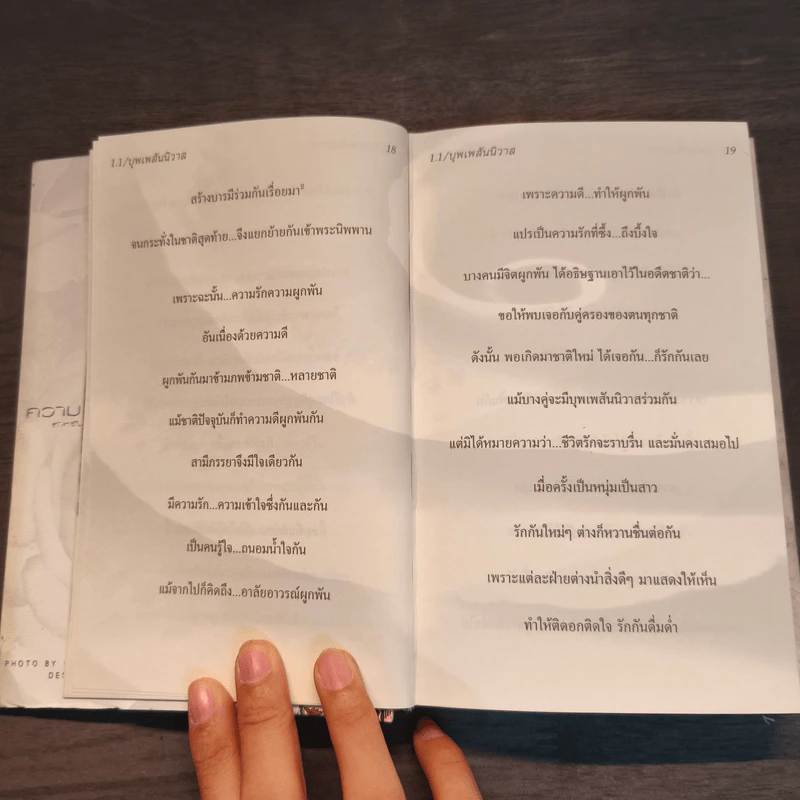 1.1/บุพเพสันนิวาส 18
สร้างบารมีร่วมกันเรื่อยมา
จนกระทั่งในชาติสุดท้าย...จึงแยกย้ายกันเข้าพระนิพพาน
เพราะฉะนั้น...ความรักความผูกพัน
อันเนื่องด้วยความดี
ผูกพันกันมาข้ามภพข้ามชาติ...หลายชาติ
แม้ชาติปัจจุบันก็ทำความดีผูกพันกัน
สามีภรรยาจึงมีใจเดียวกัน
มีความรัก...ความเข้าใจซึ่งกันและกัน
เป็นคนรู้ใจ...ถนอมน้ำใจกัน
แม้จากไปก็คิดถึง...อาลัยอาวรณ์ผูกพัน
1.1/บุพเพสันนิวาส 19
เพราะความดี...ทำให้ผูกพัน
แปรเป็นความรักที่ซึ้ง...ถึงบึ้งใจ
บางคนมีจิตผูกพัน ได้อธิษฐานเอาไว้ในอดีตชาติว่า...
ขอให้พบเจอกับคู่ครองของตนทุกชาติ
ดังนั้น พอเกิดมาชาติใหม่ ได้เจอกัน...ก็รักกันเลย
แม้บางคู่จะมีบุพเพสันนิวาสร่วมกัน
แต่มิได้หมายความว่า...ชีวิตรักจะราบรื่น และมั่นคงเสมอไป
เมื่อครั้งเป็นหนุ่มเป็นสาว
รักกันใหม่ๆ ต่างก็หวานชื่นต่อกัน
เพราะแต่ละฝ่ายต่างนำสิ่งดีๆ มาแสดงให้เห็น
ทำให้ติดอกติดใจ รักกันดื่มด่ำ
ความ
PHOTO BY